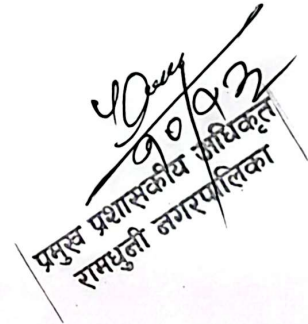 १०/१३
प्रमुख प्रशासकीय अधिकृत
रामधुनी नगरपालिका